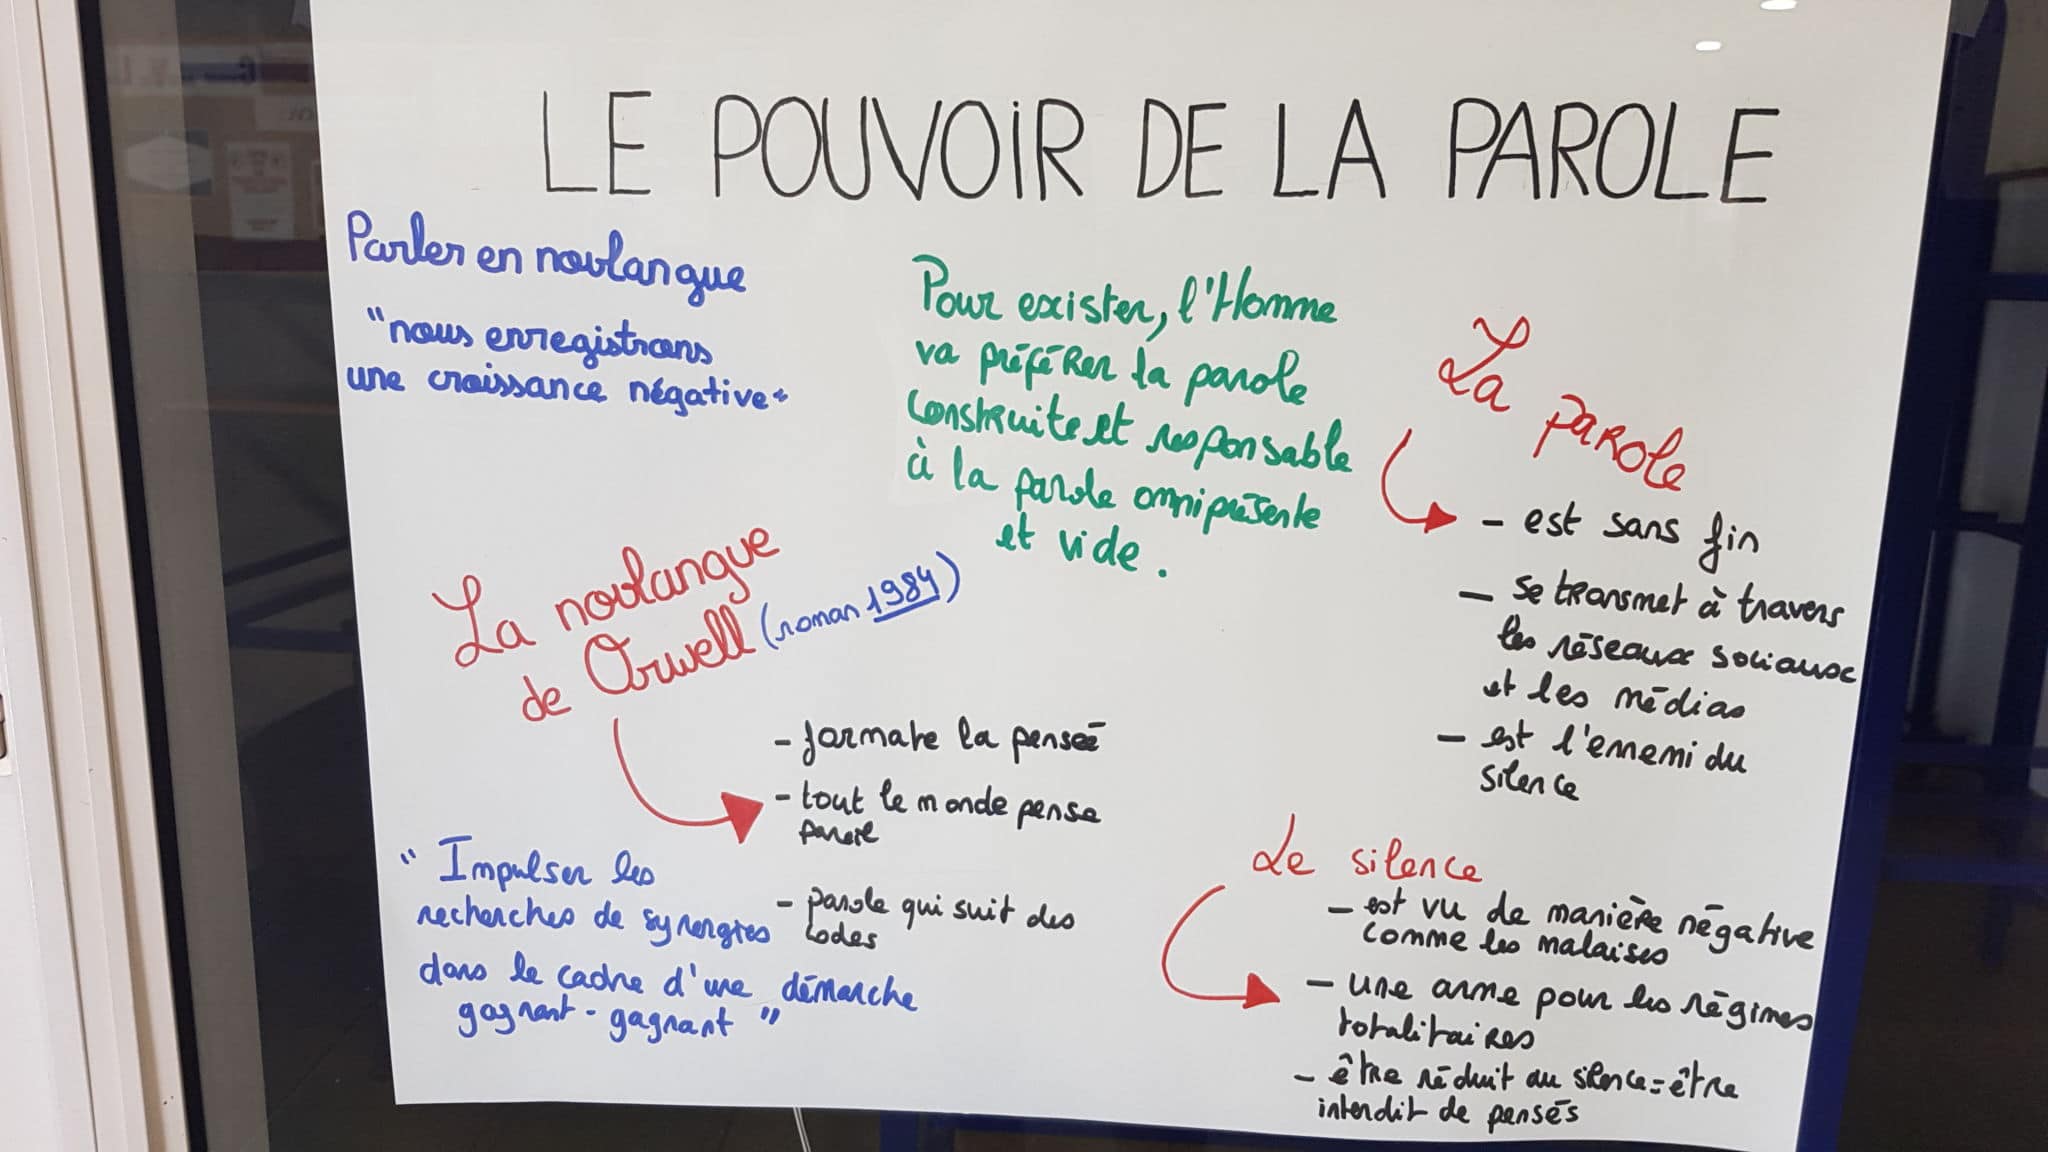 LE POUVOIR DE LA PAROLE
Parler en novlangue
"nous enregistrons
une croissance négative"
Pour exister, l'Homme
va préférer la parole
construite et responsable
à la parole omniprésente
et vide.
La parole
- est sans fin
- se transmet à travers
les réseaux sociaux
et les médias
- est l'ennemi du
silence
La novlangue
de Orwell (roman 1984)
- formate la pensée
- tout le monde pense
pareil
- parole qui suit des
codes
"Impulser les
recherches de synergies
dans le cadre d'une démarche
gagnant-gagnant"
Le silence
- est vu de manière négative
comme les malaises
- une arme pour les régimes
totalitaires
- être réduit au silence = être
interdit de pensés